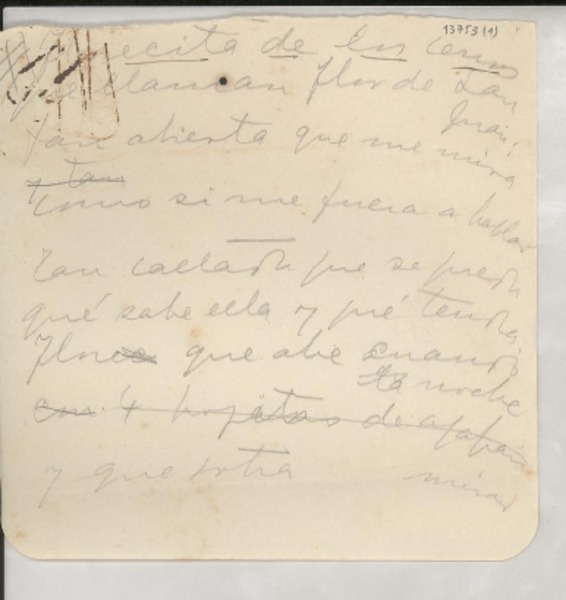 13753 (1)
Florecita de los cerros
que llaman flor de San
Juan,
tan abierta que me mira
y tan
como si me fuera a hablar
Tan callada que se queda
qué sabe ella y qué tendrá
Flore que abre cuando
la noche
con 4 hojitas de azafrán
y que
mirar